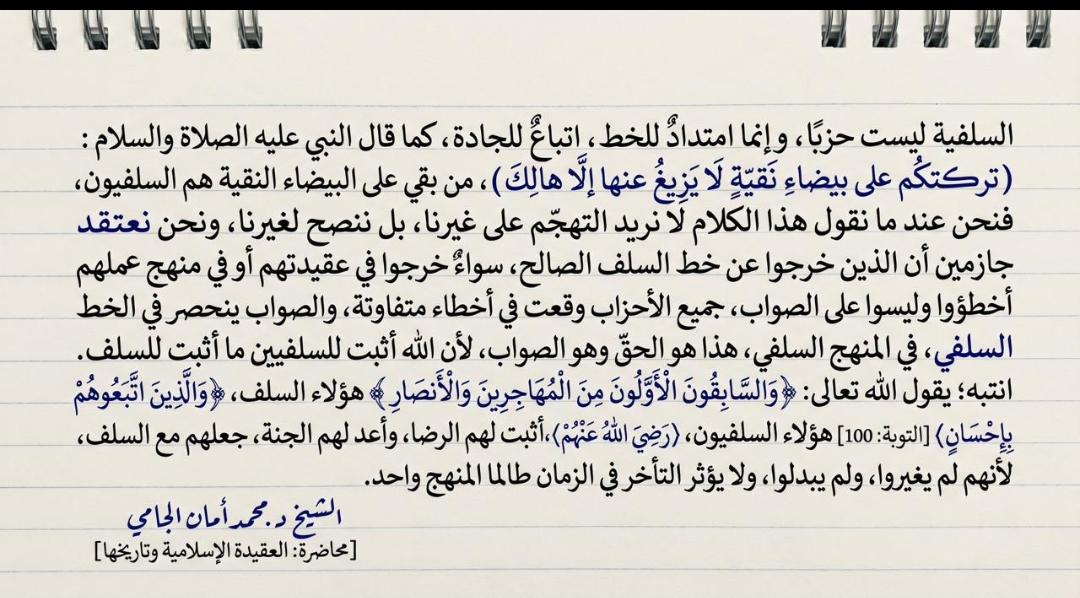 السلفية ليست حزبًا، وإنما امتدادٌ للخط، اتباعٌ للجادة، كما قال النبي عليه الصلاة والسلام :
(تركتكُم على بيضاءِ نَقيّةٍ لَا يَزِيغُ عنها إلَّا هالِكَ)، من بقي على البيضاء النقية هم السلفيون،
فنحن عند ما نقول هذا الكلام لا نريد التهجّم على غيرنا، بل ننصح لغيرنا، ونحن نعتقد
جازمين أن الذين خرجوا عن خط السلف الصالح، سواءٌ خرجوا في عقيدتهم أو في منهج عملهم
أخطؤوا وليسوا على الصواب، جميع الأحزاب وقعت في أخطاء متفاوتة، والصواب ينحصر في الخط
السلفي، في المنهج السلفي، هذا هو الحقّ وهو الصواب، لأن الله أثبت للسلفيين ما أثبت للسلف.
انتبه؛ يقول الله تعالى: ﴿وَالسَّابِقُونَ الْأَوَّلُونَ مِنَ الْمُهَاجِرِينَ وَالْأَنصَارِ﴾ هؤلاء السلف، ﴿وَالَّذِينَ اتَّبَعُوهُمْ
بِإِحْسَانٍ﴾ [التوبة: 100] هؤلاء السلفيون، ﴿رَضِيَ اللهُ عَنْهُمْ﴾،أثبت لهم الرضا، وأعد لهم الجنة، جعلهم مع السلف،
لأنهم لم يغيروا، ولم يبدلوا، ولا يؤثر التأخر في الزمان طالما المنهج واحد.
الشيخ د.محمد أمان الجامي
[محاضرة: العقيدة الإسلامية وتاريخها]